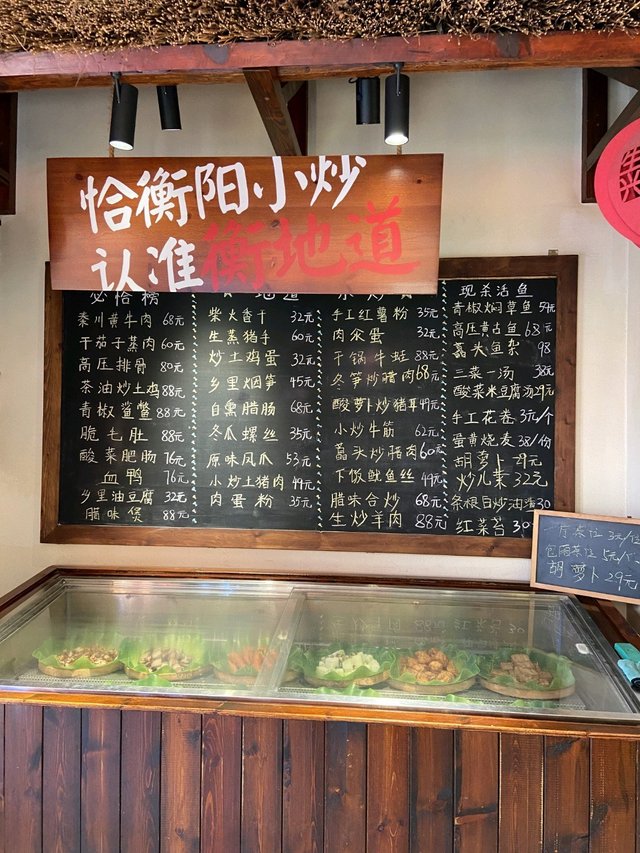 恰衡阳小炒
认准衡地道
必恰榜
秦川黄牛肉 68元
干茄子蒸肉 60元
高压排骨 80元
茶油炒土鸡 88元
青椒鲨鳖 88元
脆毛肚 88元
酸菜肥肠 76元
血鸭 76元
乡里油豆腐 32元
腊味煲 88元
地道
柴火香干 32元
生蒸猪手 60元
炒土鸡蛋 32元
乡里烟笋 45元
自熏腊肠 68元
冬瓜螺丝 35元
原味凤爪 53元
小炒土猪肉 49元
肉蛋粉 35元
手工红薯粉 35元
肉汆蛋 32元
干锅牛蛙 88元
冬笋炒腊肉 68元
酸萝卜炒猪耳 49元
小炒牛筋 62元
藠头炒腊肉 60元
下饭鱿鱼丝 49元
腊味合炒 68元
生炒羊肉 88元
现杀活鱼
青椒焖草鱼 54元
高压黄古鱼 68元
藠头鱼杂 98
三菜一汤 38元
酸菜米豆腐汤 29元
手工花卷 3元/个
蛋黄烧麦 38/份
胡萝卜 29元
炒儿菜 32元
红菜苔 30
胡萝卜 29元